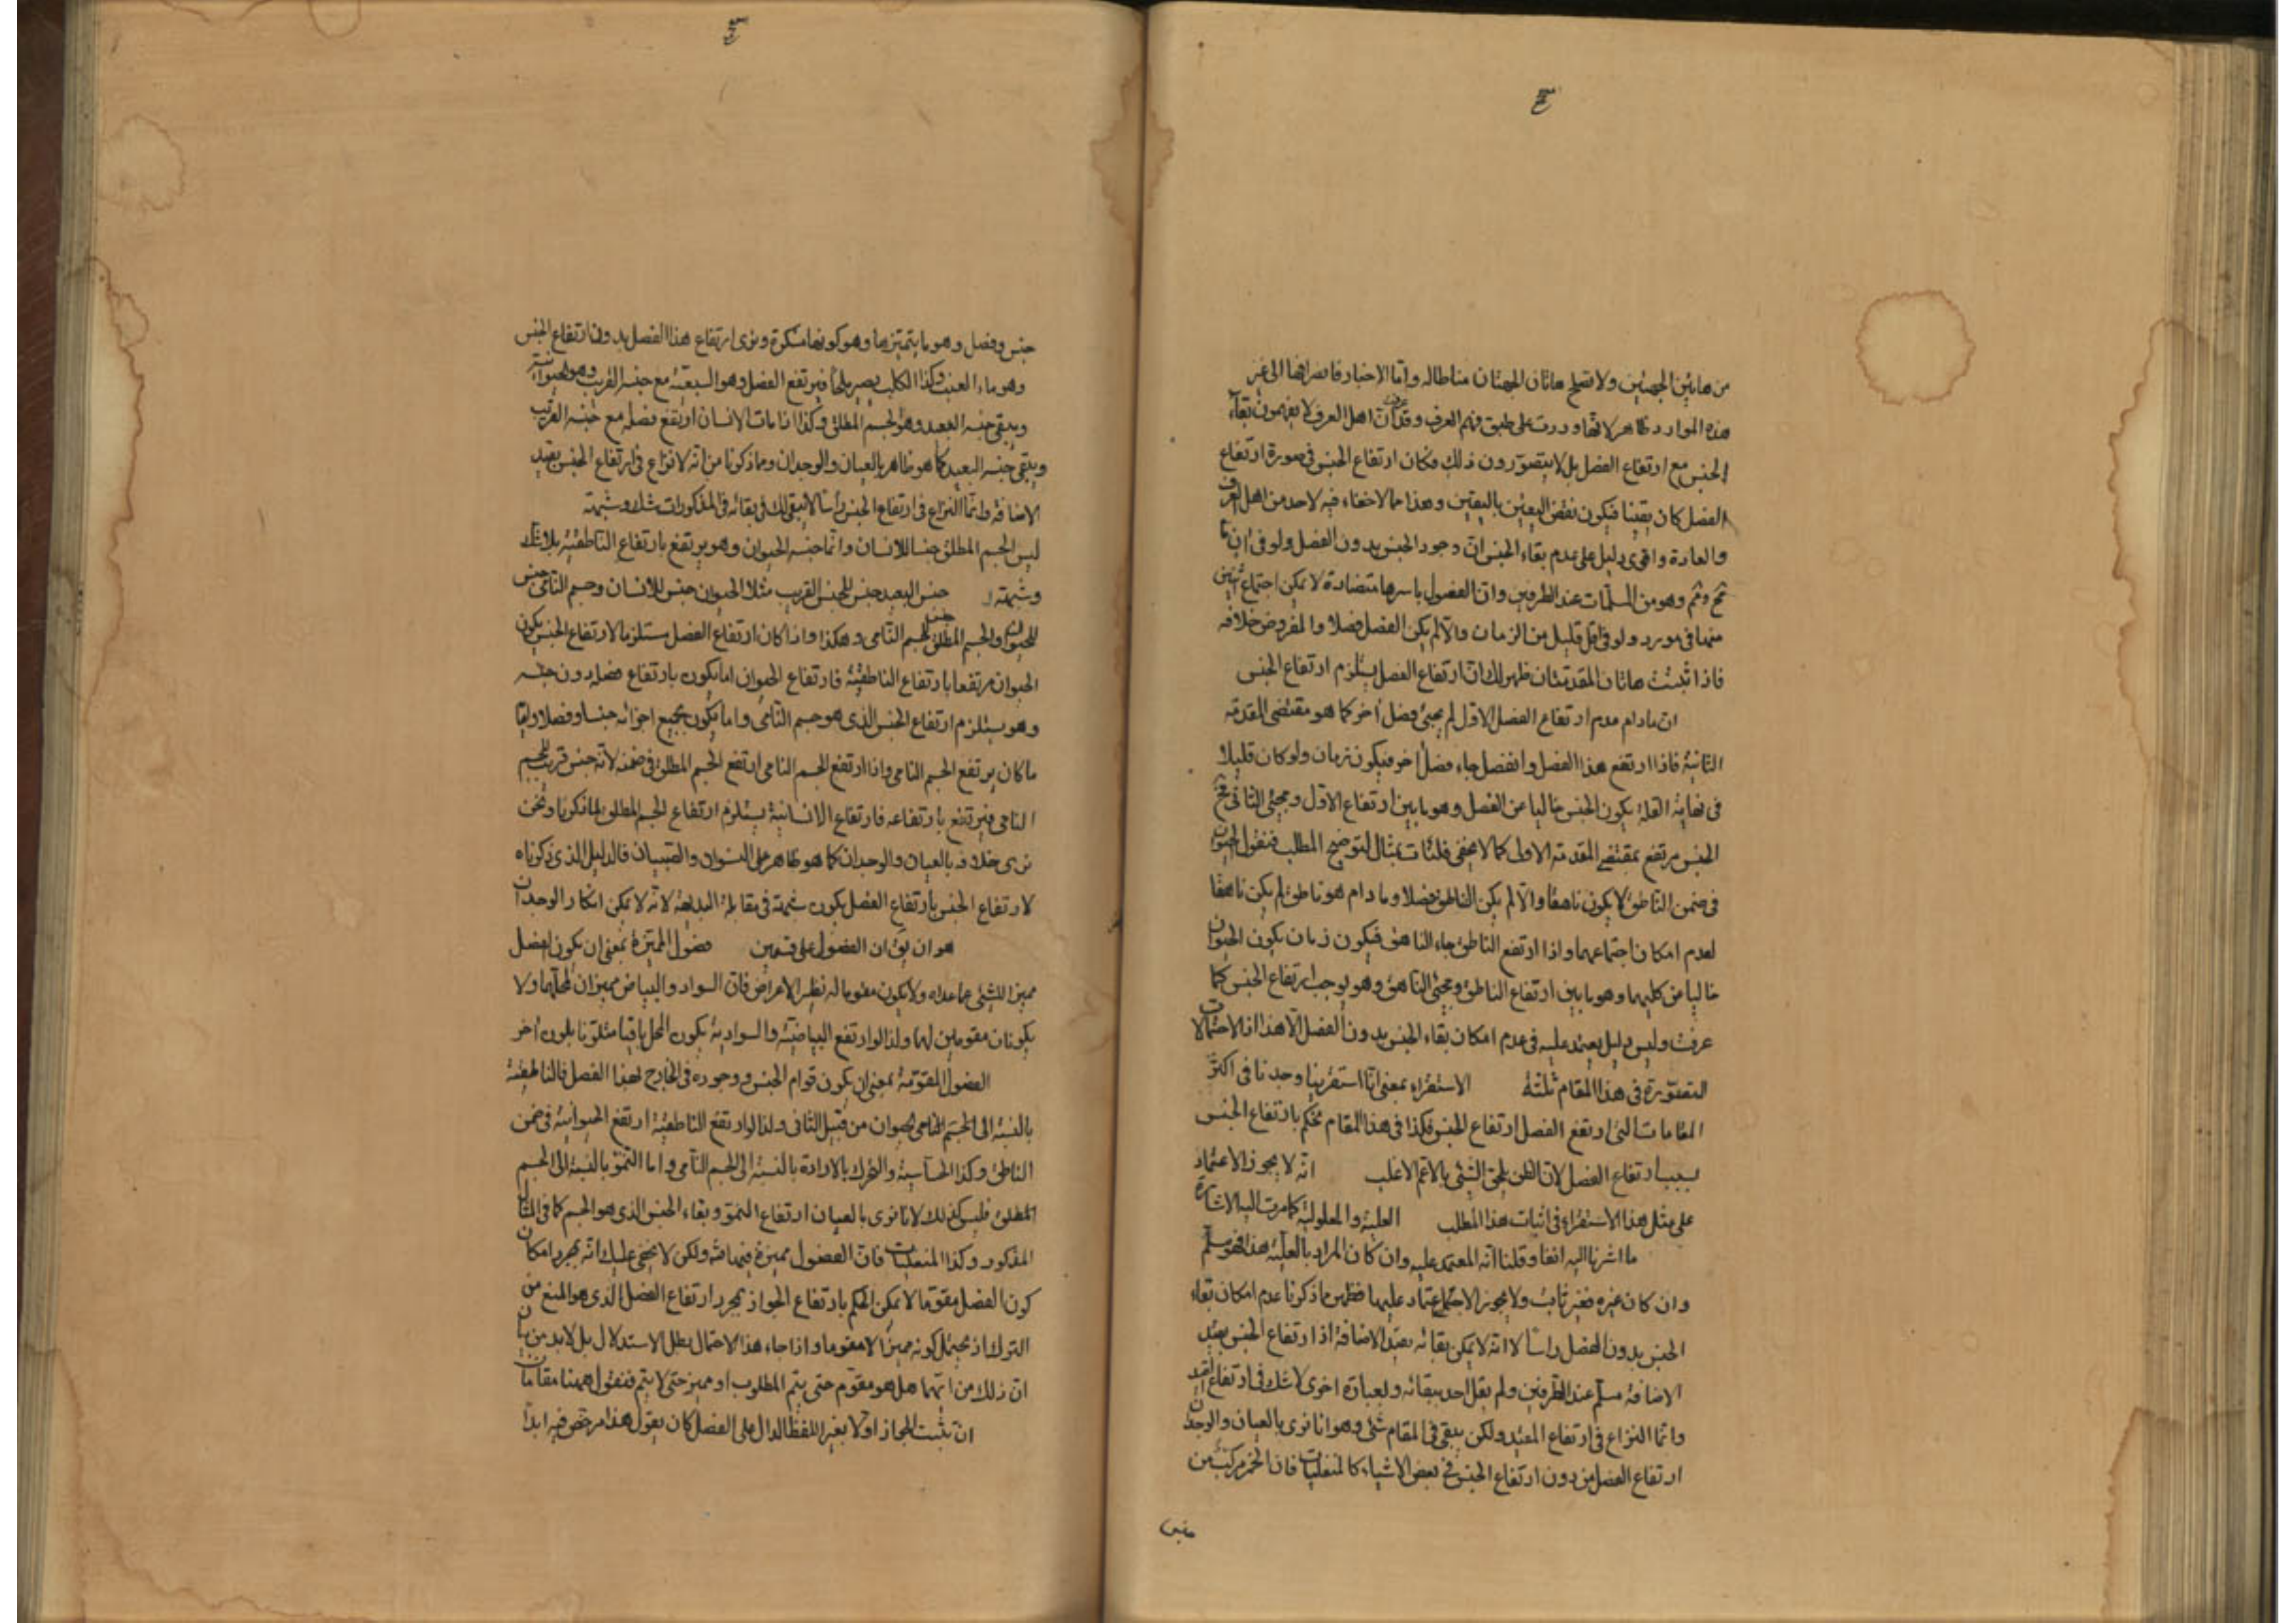 من هاتين الجهتين ولا تصلح هاتان الجهتان مناطا له واما الاخبار فانصرافها الى غير
هذه الموارد ظاهر لانها وردت على طبق فهم العرف وقد عرفت ان اهل العرف لا يفهمون بقاء
الجنس مع ارتفاع الفصل بل لا يتصورون ذلك فكان ارتفاع الجنس في صورة ارتفاع
الفصل كان يقينا فيكون نقض اليقين باليقين وهذا مما لا خفاء فيه لاحد من اهل العرف
والعادة واقوى دليل على عدم بقاء الجنس ان وجود الجنس بدون الفصل ولو في ان ما
مح وثم وهو من المسلمات عند الطرفين وان الفصول باسرها متضادة لا يمكن اجتماع شيئين
منها في مورد ولو في اقل قليل من الزمان والا لم يكن الفصل فصلا والمفروض خلافه
فاذا ثبتت هاتان المقدمتان ظهر لك ان ارتفاع الفصل يستلزم ارتفاع الجنس
ان مادام عدم ارتفاع الفصل الاول لم يجئ فصل اخر كما هو مقتضى المقدمة
الثانية فاذا ارتفع هذا الفصل وانفصل جاء فصل اخر فيكون زمان ولو كان قليلا
في نهاية القلة يكون الجنس خاليا عن الفصل وهو ما بين ارتفاع الاول ومجئ الثاني فح
الجنس مرتفع بمقتضى المقدمة الاولى كما لا يخفى فلنات بمثال لتوضيح المطلب فنقول الحيوان
في ضمن الناطق لا يكون ناهقا والا لم يكن الناطق فصلا وما دام هو ناطق لم يكن ناهقا
لعدم امكان اجتماعهما واذا ارتفع الناطق جاء الناهق فيكون زمان يكون الحيوان
خاليا من كليهما وهو ما بين ارتفاع الناطق ومجئ الناهق وهو يوجب ارتفاع الجنس كما
عرفت وليس دليل يعتمد عليه في عدم امكان بقاء الجنس بدون الفصل الا هذا اذ الاحتمالات
المتصورة في هذا المقام ثلثة الاستقراء بمعنى انا استقرينا وجدنا في اكثر
المقامات التي ارتفع الفصل ارتفاع الجنس فكذا في هذا المقام نحكم بارتفاع الجنس
بسبب ارتفاع الفصل لان الظن يلحق الشئ بالاعم الاغلب انه لا يجوز الاعتماد
على مثل هذا الاستقراء في اثبات هذا المطلب العلية والمعلولية كما مرت اليه الاشارة
ما اشرنا اليه انفا وقلنا انه المعتمد عليه وان كان المراد بالعلية هذا فهو مسلم
وان كان غيره فغير ثابت ولا يجوز الاعتماد عليها فظهر مما ذكرنا عدم امكان بقاء
الجنس بدون الفصل راسا لا انه لا يمكن بقائه بقيد الاضافة اذ ارتفاع الجنس بقيد
الاضافة مسلم عند الطرفين ولم يقل احد ببقائه وبعبارة اخرى لا شك في ارتفاع القيد
وانما النزاع في ارتفاع المقيد ولكن يبقى في المقام شئ وهو انا نرى بالعيان والوجدان
ارتفاع الفصل من دون ارتفاع الجنس في بعض الاشياء كالمنقلبات فان الخمر مركب من
جنس
جنس وفصل وهو ما يتميز بها وهو كونها مسكرة ونرى ارتفاع هذا الفصل بدون ارتفاع الجنس
وهو ماء العنب وكذا الكلب يصير ملحا فيرتفع الفصل وهو السبعية مع جنسه القريب وهو الحيوانية
ويبقى جنسه البعيد وهو الجسم المطلق وكذا اذا مات الانسان ارتفع فصله مع جنسه القريب
ويبقى جنسه البعيد كما هو ظاهر بالعيان والوجدان ومما ذكرنا من انه لا نزاع في ارتفاع الجنس بقيد
الاضافة وانما النزاع في ارتفاع الجنس راسا لا يبقى لك في بقائه في المذكورات شك وشبهة
ليس الجسم المطلق جنسا للانسان وانما جنسه الحيوان وهو يرتفع بارتفاع الناطقية بلا شك
وشبهة جنس البعيد جنس للجنس القريب مثلا الحيوان جنس للانسان وجسم النامي جنس
للحيوان والجسم المطلق جنس للجسم النامي وهكذا واذا كان ارتفاع الفصل مستلزما لارتفاع الجنس يكون
الحيوان مرتفعا بارتفاع الناطقية فارتفاع الحيوان اما يكون بارتفاع فصله دون جنسه
وهو يستلزم ارتفاع الجنس الذي هو جسم النامي واما يكون بجميع اجزائه جنسا وفصلا وايا
ما كان يرتفع الجسم النامي واذا ارتفع الجسم النامي ارتفع الجسم المطلق في ضمنه لانه جنس قريب للجسم
النامي فيرتفع بارتفاعه فارتفاع الانسانية يستلزم ارتفاع الجسم المطلق لما ذكرنا ونحن
نرى خلافه بالعيان والوجدان كما هو ظاهر على النسوان والصبيان فالدليل الذي ذكرناه
لارتفاع الجنس بارتفاع الفصل يكون شبهة في مقابلة البداهة لانه لا يمكن انكار الوجدان
هو ان يق ان الفصول على قسمين فصول المميزة بمعنى ان يكون الفصل
مميزا للشئ عما عداه ولا يكون مقوما له نظير الاعراض فان السواد والبياض مميزان لمحالهما ولا
يكونان مقومين لها ولذا لو ارتفع البياضية والسوادية يكون المحل باقيا متلونا بلون اخر
الفصول المقومة بمعنى ان يكون قوام الجنس ووجوده في الخارج لهذا الفصل فالناطقية
بالنسبة الى الجسم النامي الحيوان من قبيل الثاني ولذا لو ارتفع الناطقية ارتفع الحيوانية في ضمن
الناطق وكذا الحساسية والتحرك بالارادة بالنسبة الى الجسم النامي واما النمو بالنسبة الى الجسم
المطلق فليس كذلك لانا نرى بالعيان ارتفاع النمو وبقاء الجنس الذي هو الجسم كما في المثال
المذكور وكذا المنقلبات فان الفصول مميزة فيها ولكن لا يخفى عليك انه بمجرد امكان
كون الفصل مقوما لا يمكن الحكم بارتفاع الجواز بمجرد ارتفاع الفصل الذي هو المنع من
الترك اذ يحتمل كونه مميزا لا مقوما واذا جاء هذا الاحتمال بطل الاستدلال بل لابد من بيان
ان ذلك من ايهما هل هو مقوم حتى يتم المطلوب او مميز حتى لا يتم فنقول ههنا مقامات
ان تثبت الجواز اولا بغير اللفظ الدال على الفصل كان يقول هذا مرخص فيه ابدا